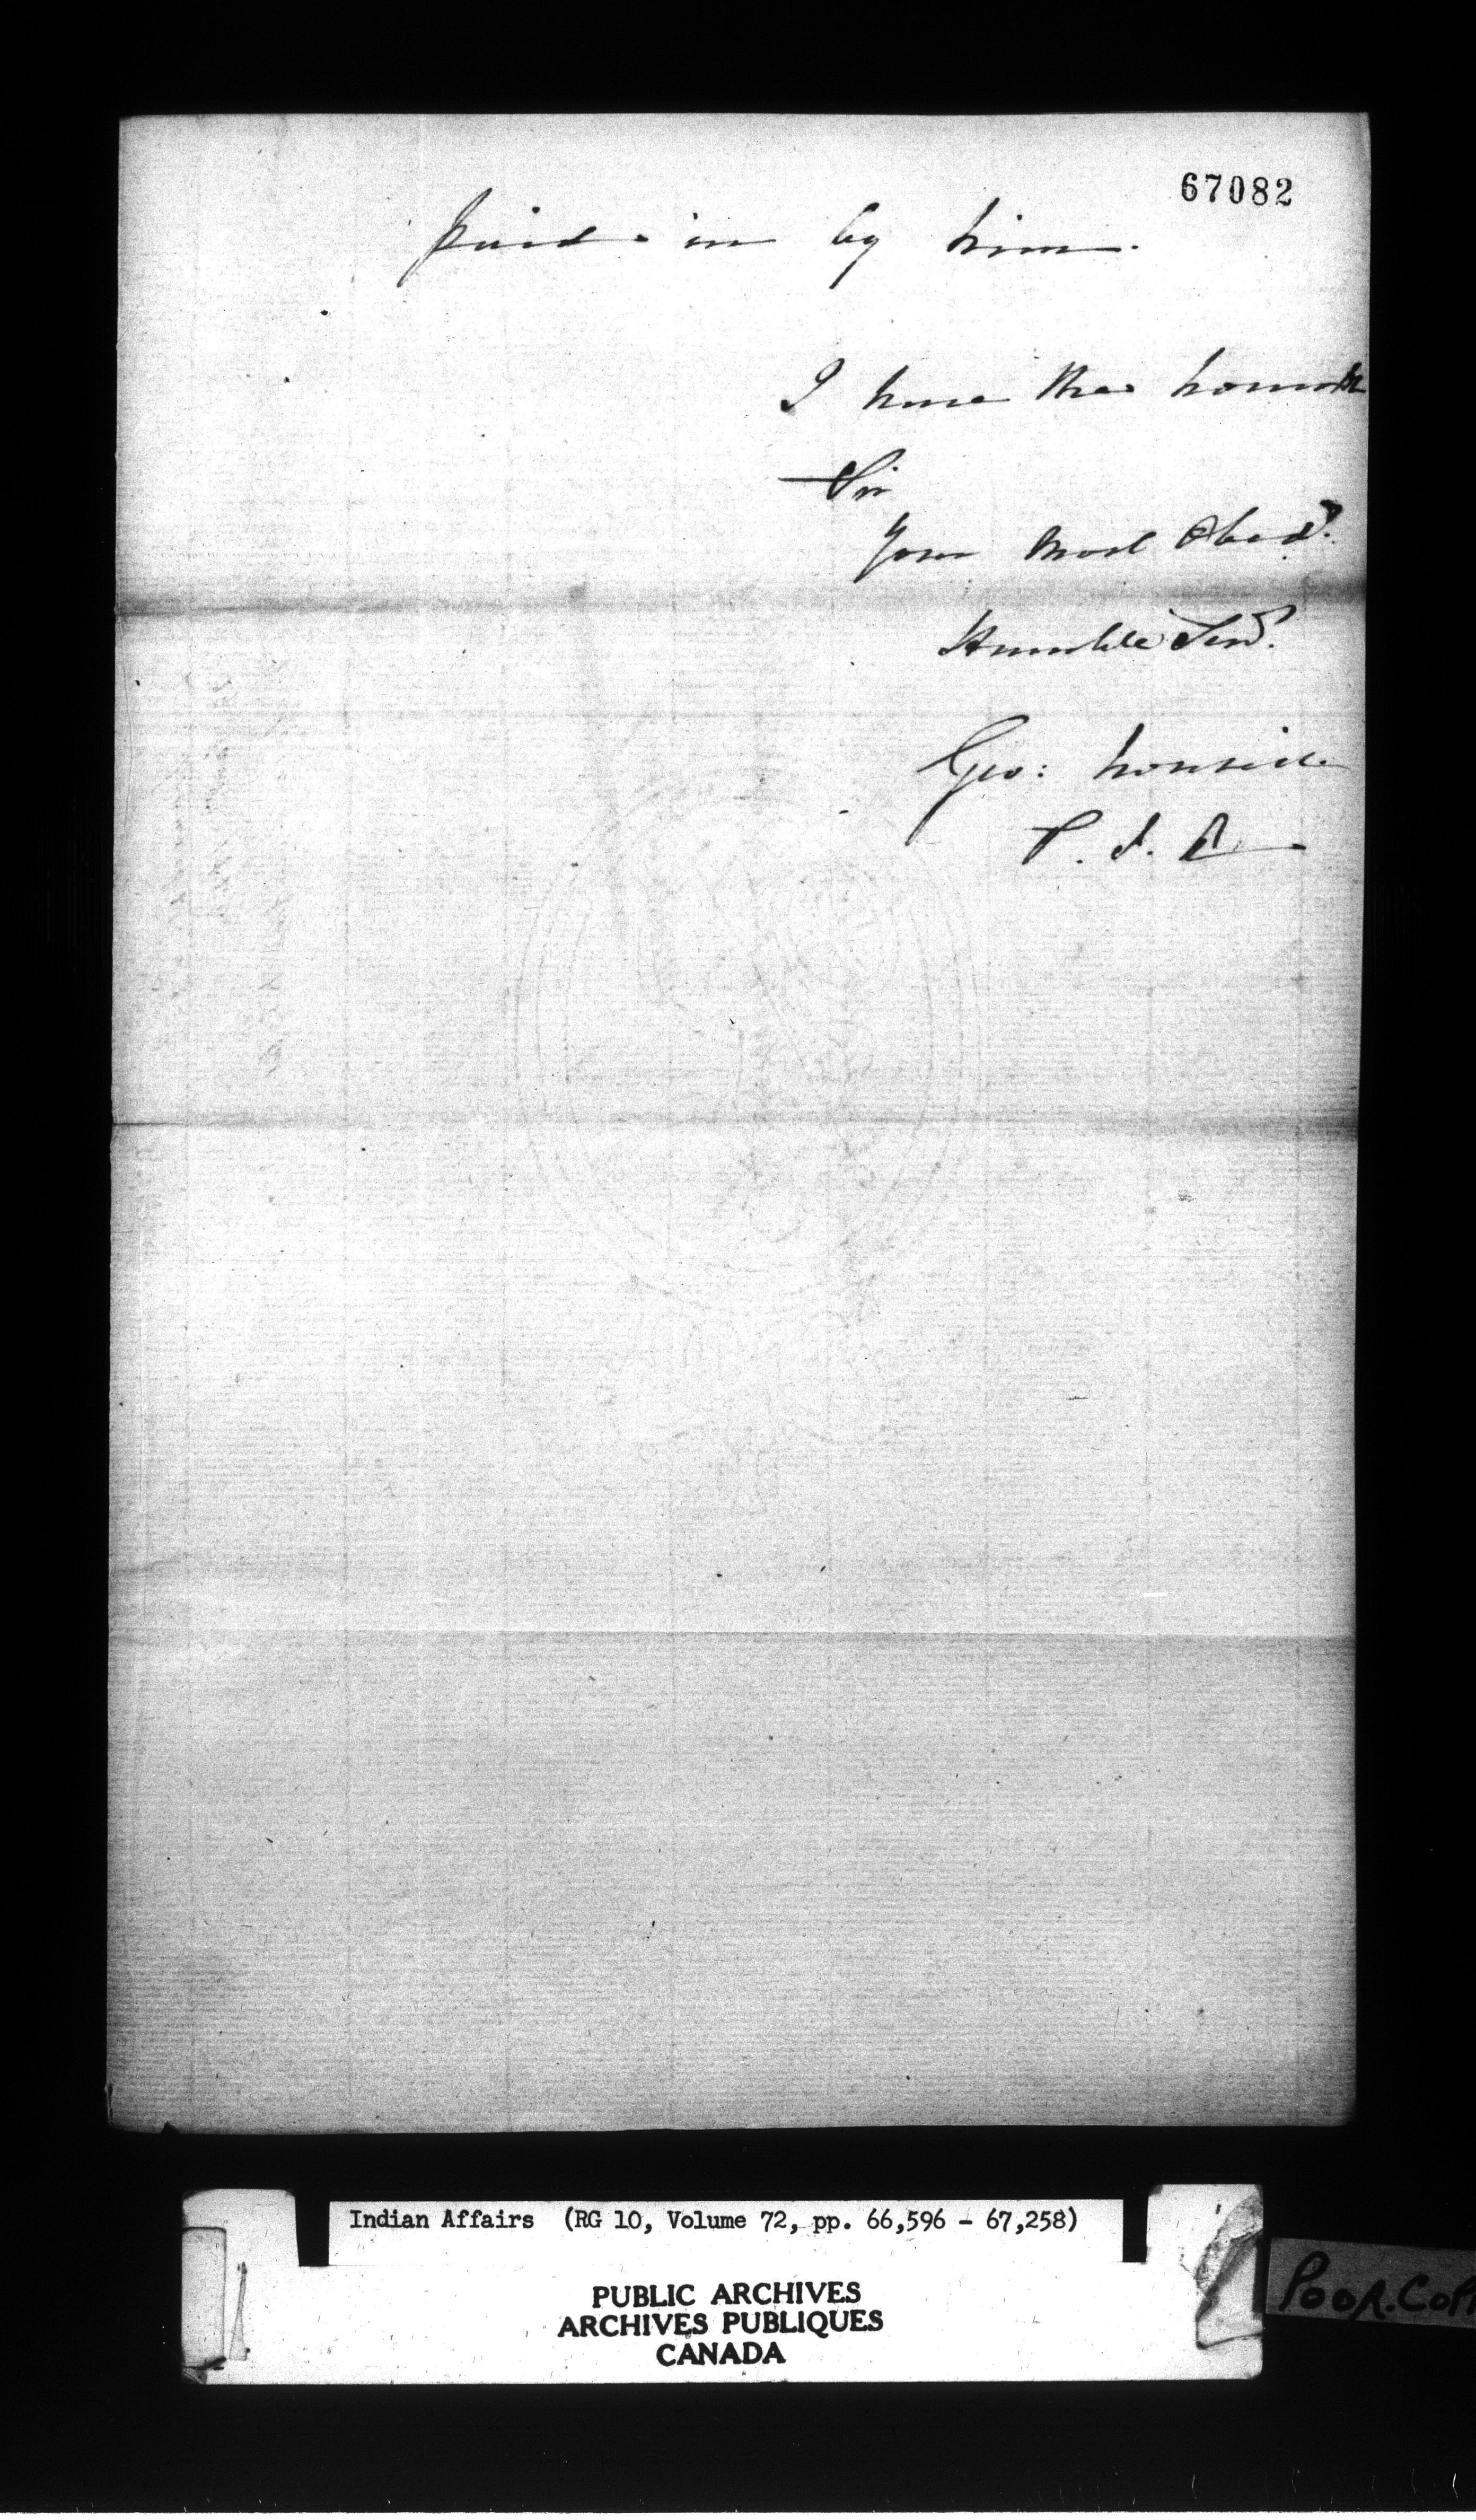 67082
paid in by him.
I have the honor
Sir
Your Most Obed.t
Humble Serv.t
Geo: Ironside
S. I. A
Indian Affairs (RG 10, Volume 72, pp. 66,596 - 67,258)
PUBLIC ARCHIVES
ARCHIVES PUBLIQUES
CANADA
POOR.COP